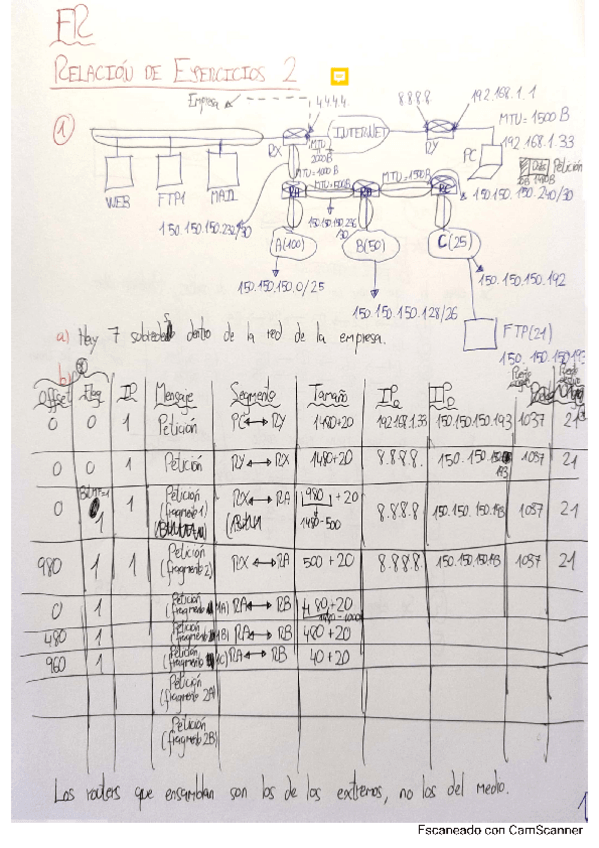 FR
RELACIÓN DE EJERCICIOS 2
1
Empresa
4.4.4.4.
8.8.8.8.
192.168.1.1
INTERNET
MTU = 1500 B
RX
RY
PC
192.168.1.33
MTU 2000B
MTU = 1000 B
Petición
WEB
FTP1
MAIL
RA
MTU = 500B
RB
MTU = 1500B
RC
150.150.150.240/30
150.150.150.232/30
150.150.150.236/30
A(100)
B(50)
C(25)
150.150.150.0/25
150.150.150.128/26
150.150.150.192
FTP(21)
150.150.150.193
a) Hay 7 subredes dentro de la red de la empresa.
b)
Offset Flag ID Mensaje Segmento Tamaño IPo IPD
0 0 1 Petición PC↔RY 1480+20 192.168.1.33 150.150.150.193 1037 21
0 0 1 Petición RY↔RX 1480+20 8.8.8.8. 150.150.150.193 1037 21
0 1 1 Petición (fragmento 1) RX↔RA 980+20 1480-500 8.8.8.8 150.150.150.193 1037 21
980 1 1 Petición (fragmento 2) RX↔RA 500+20 8.8.8.8 150.150.150.193 1037 21
0 1 Petición (fragmento 1A) RA↔RB 480+20
480 1 Petición (fragmento 1B) RA↔RB 480+20
960 1 Petición (fragmento 1C) RA↔RB 40+20
Petición (fragmento 2A)
Petición (fragmento 2B)
Los routers que ensamblan son los de los extremos, no los del medio.
1
Escaneado con CamScanner